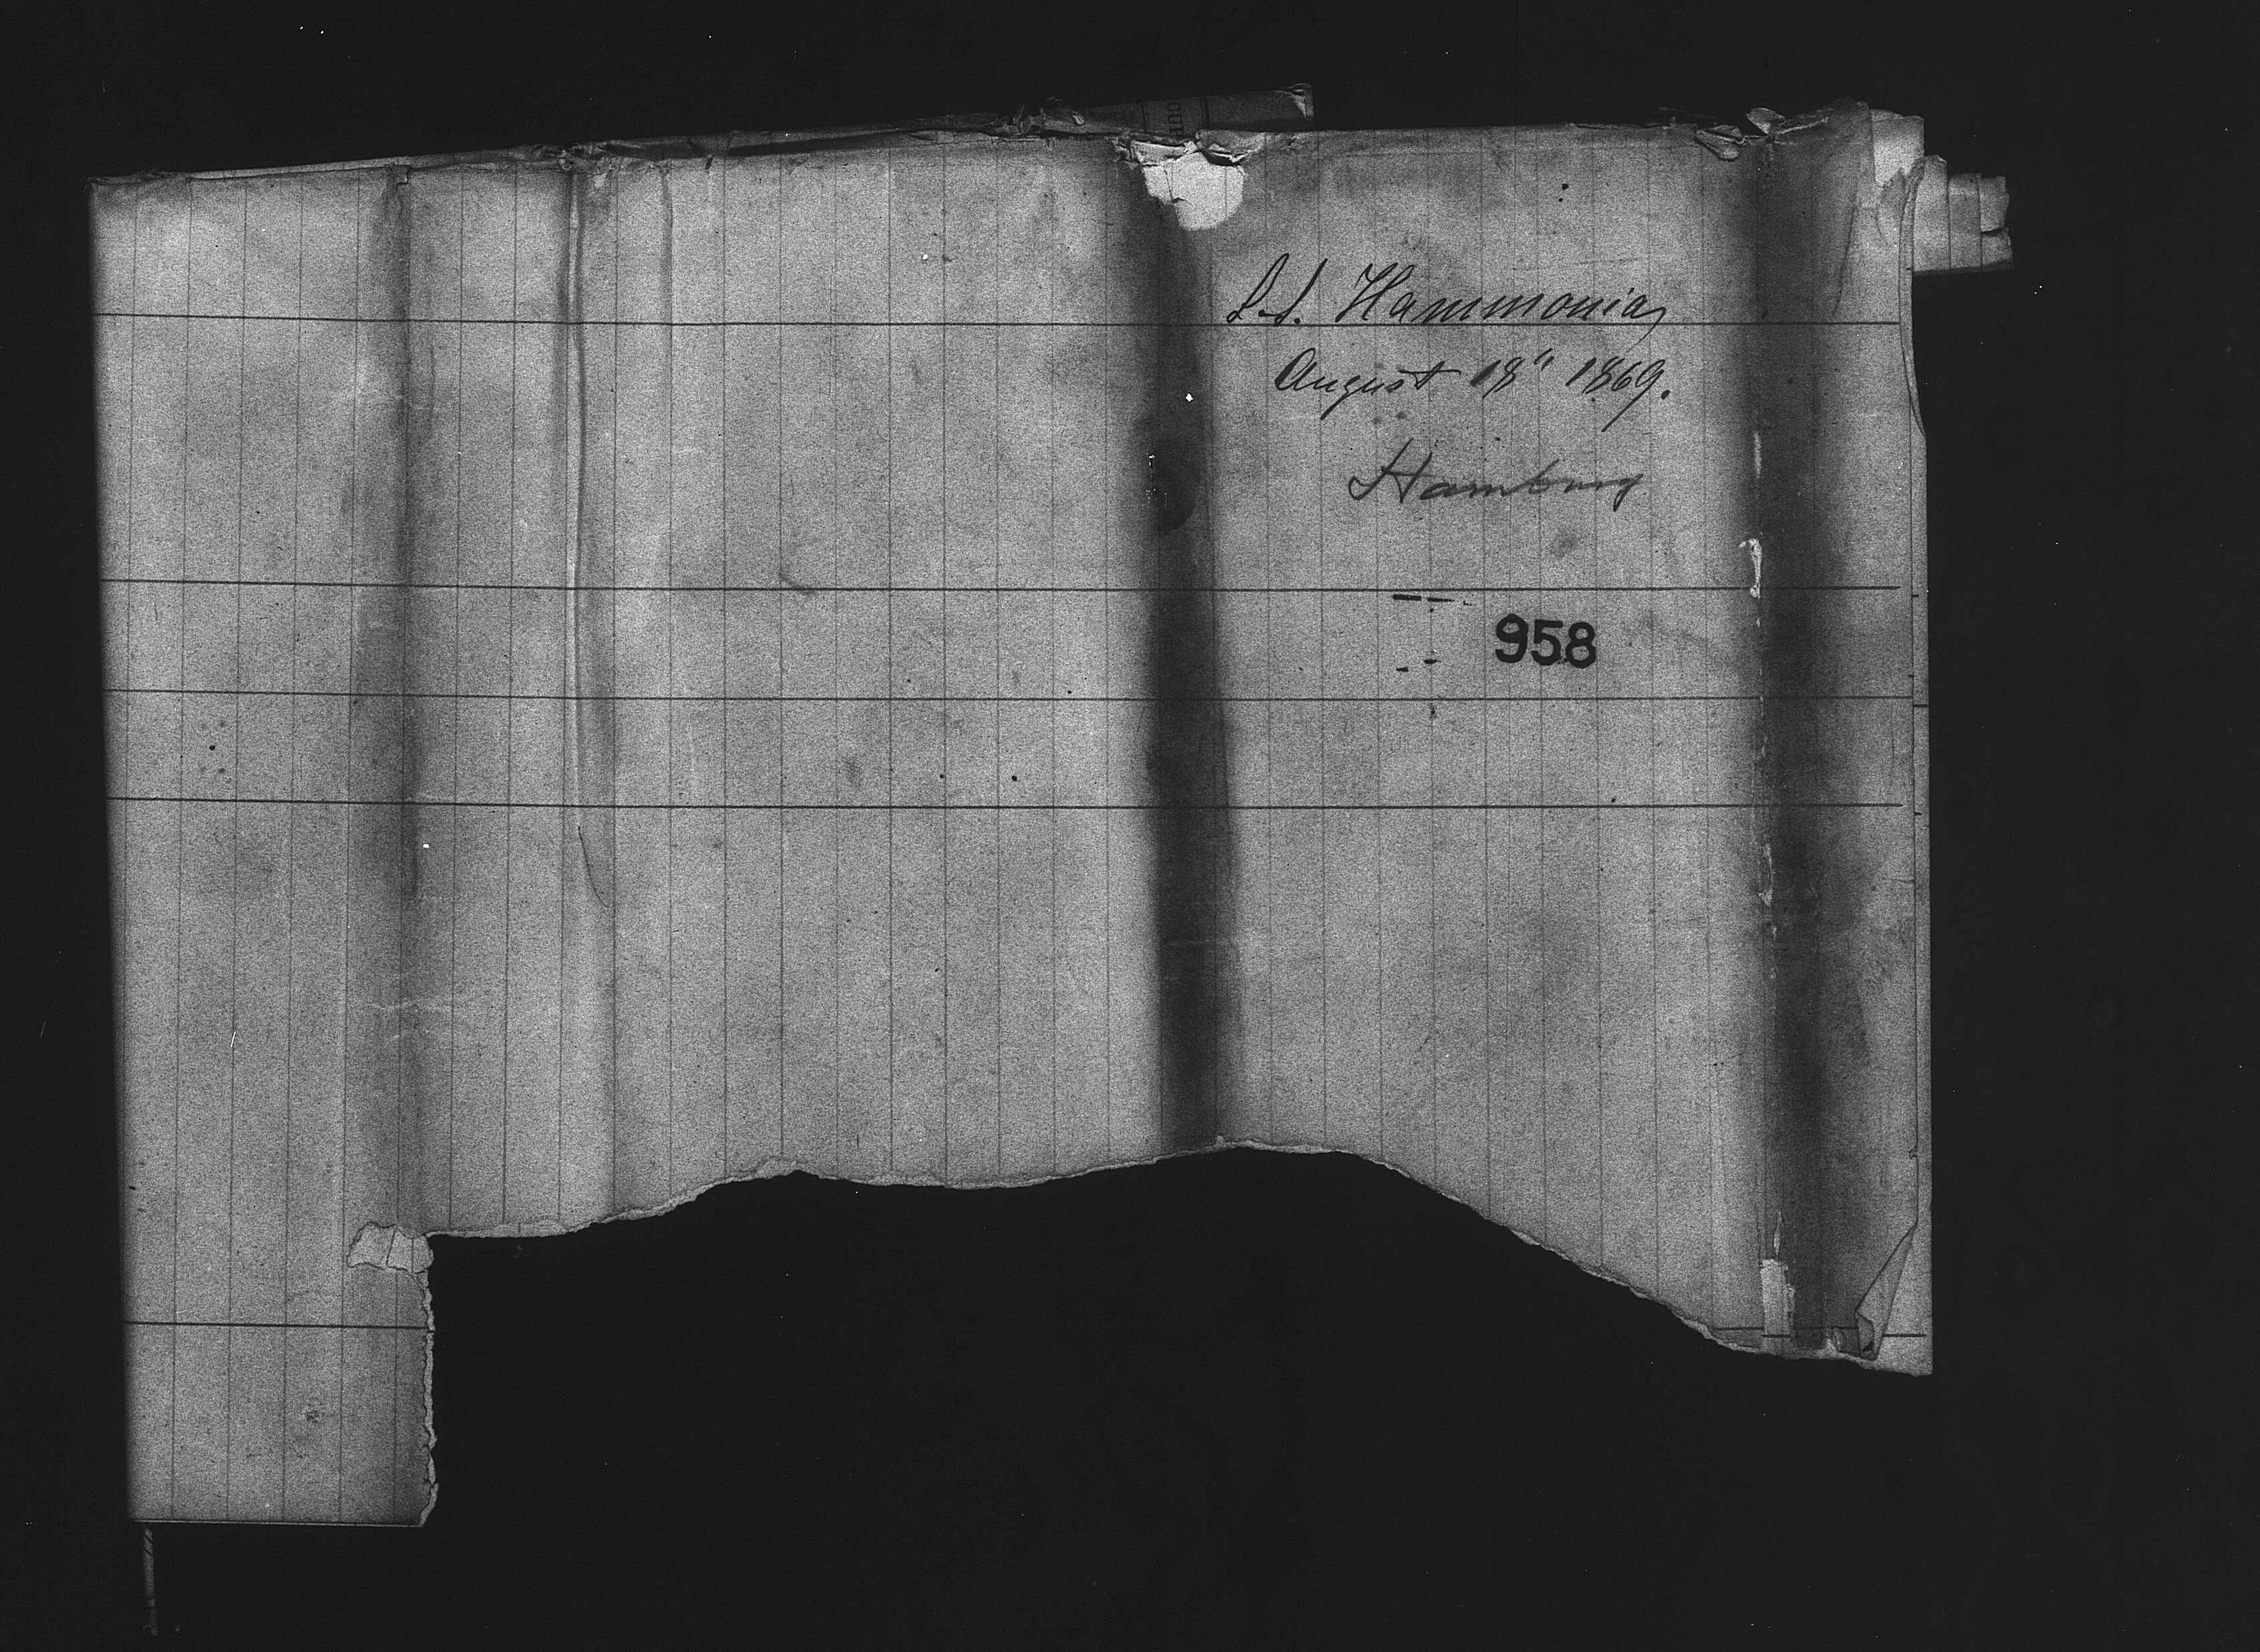 S.S. Hammonia
August 18" 1869.
Hamburg
958